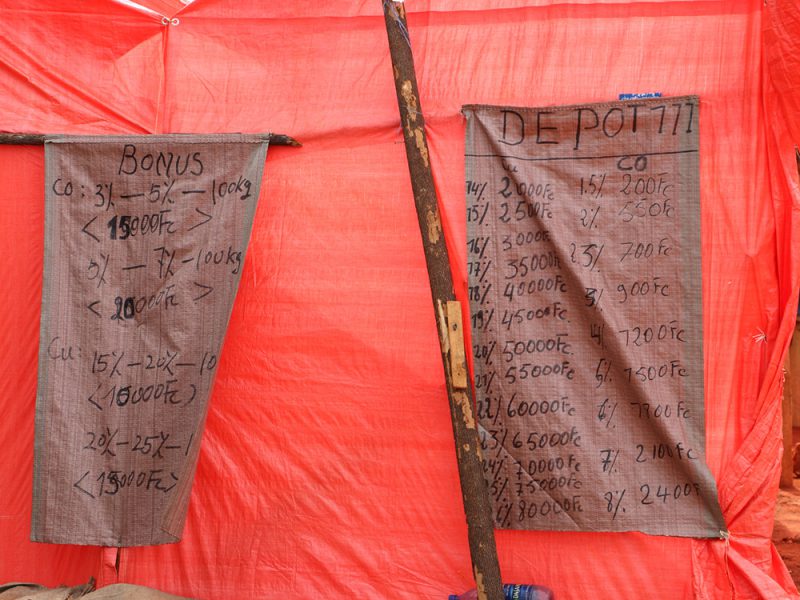 BONUS
Co: 3% — 5% — 100kg
< 15000Fc >
5% — 7% — 100kg
< 20000Fc >
Cu:
15% — 20% — 10
< 10000Fc )
20% — 25% — 1
< 15000Fc >
DEPOT 111
CO
14% 2000Fc 1.5% 200Fc
15% 2500Fc 2% 550Fc
16% 3000Fc
17% 35000 2.5% 700Fc
18% 40000Fc 3% 900Fc
19% 45000Fc
20% 50000Fc 4% 1200Fc
21% 55000Fc 5% 1500Fc
22% 60000Fc 6% Fc
23% 65000Fc 7% 2100Fc
24% 70000Fc
75000Fc 8% 2400
80000Fc